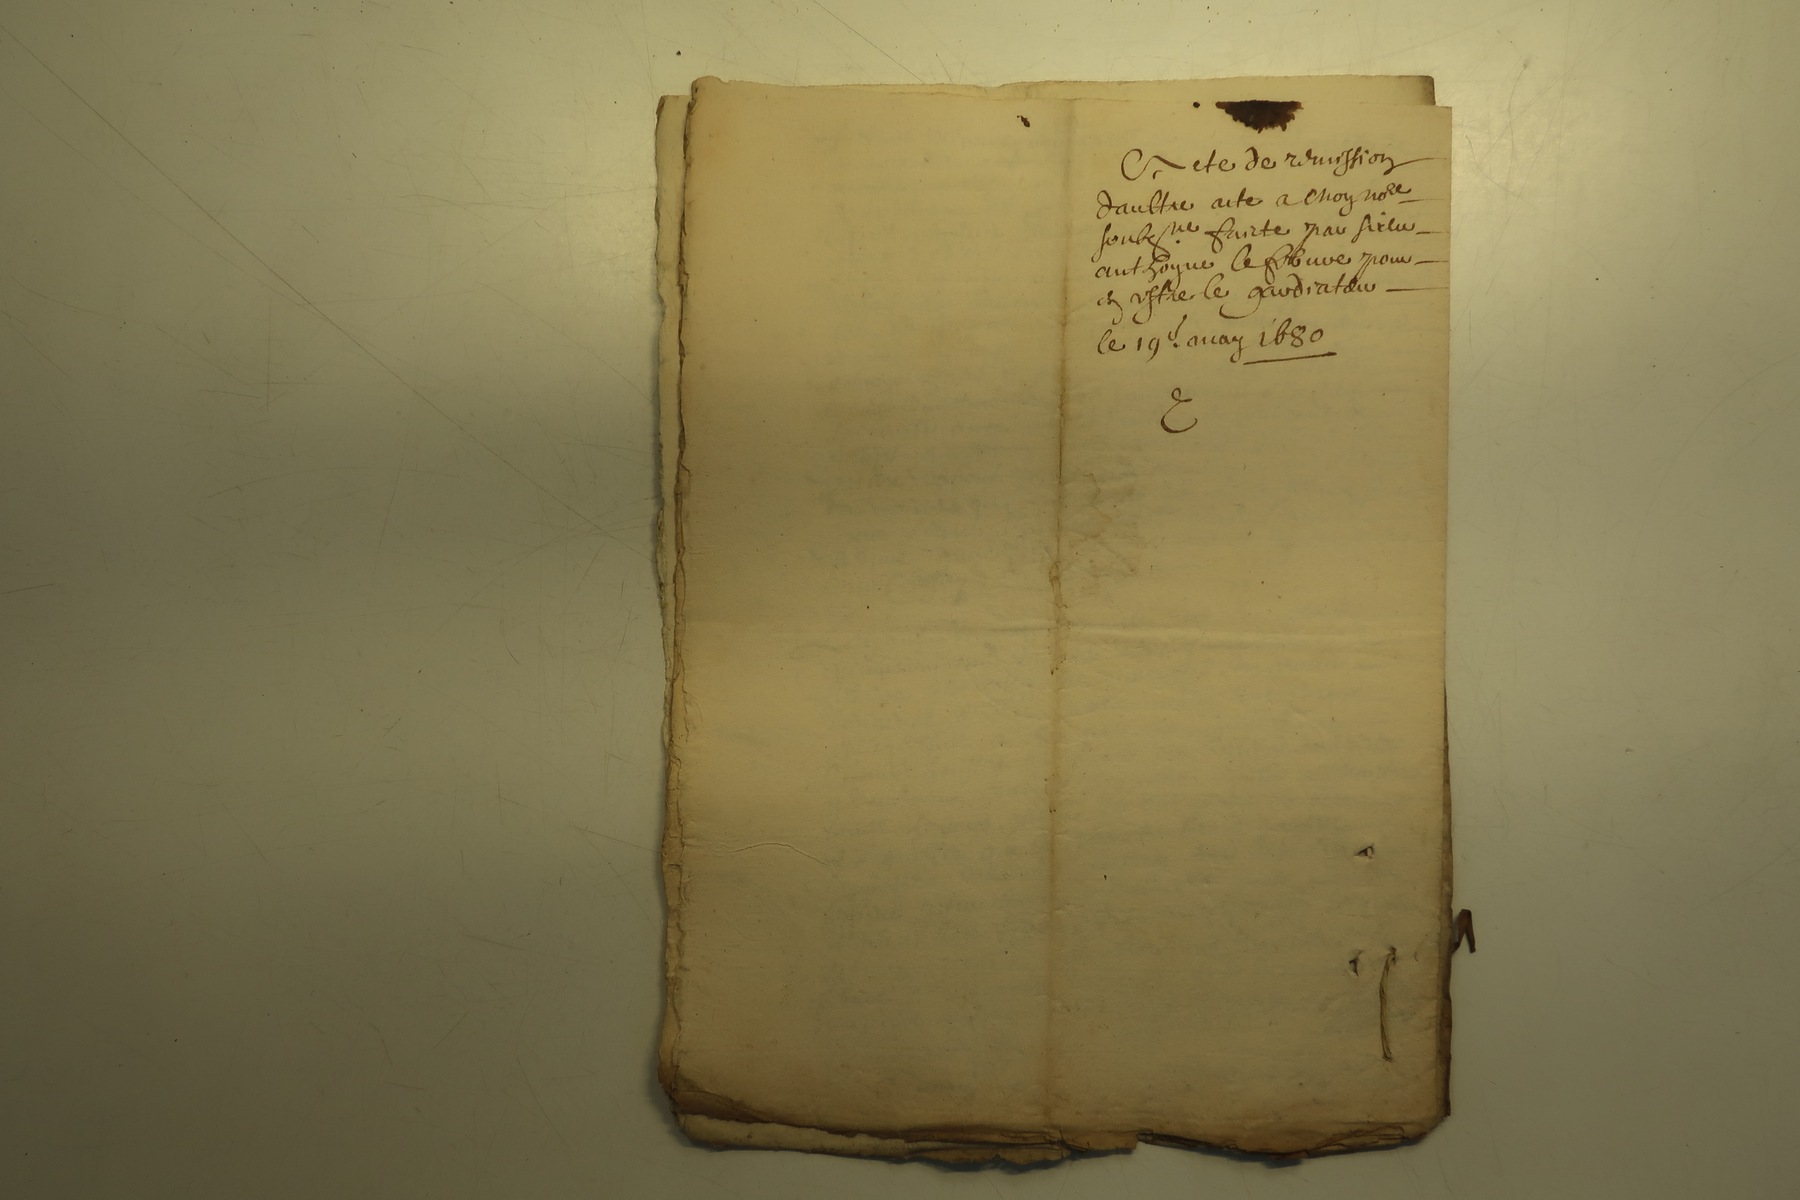 Acte de remission
daultre acte a moy no.re
soubs.ne faicte par sieur
anthoyne lefebvre pour
en estre le gardiateur
le 19.e may 1680